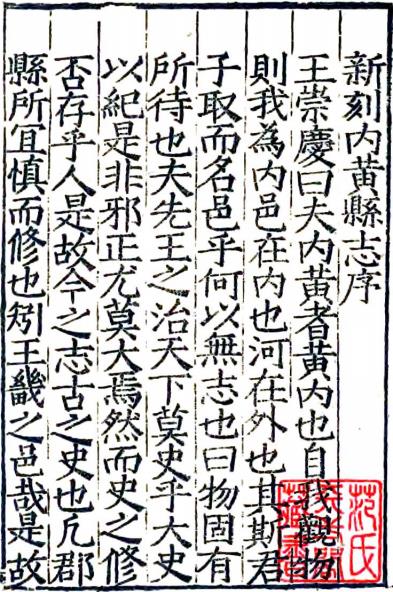 新刻内黄縣志序
王崇慶曰夫内黄者黄内也自我觀物
則我為内邑在内也河在外也其斯君
子取而名邑乎何以無志也曰物固有
所待也夫先王之治天下莫史乎大史
以紀是非邪正尤莫大焉然而史之修
否存乎人是故今之志古之史也凡郡
縣所宜慎而修也矧王畿之邑哉是故
范氏
天一閣
藏書